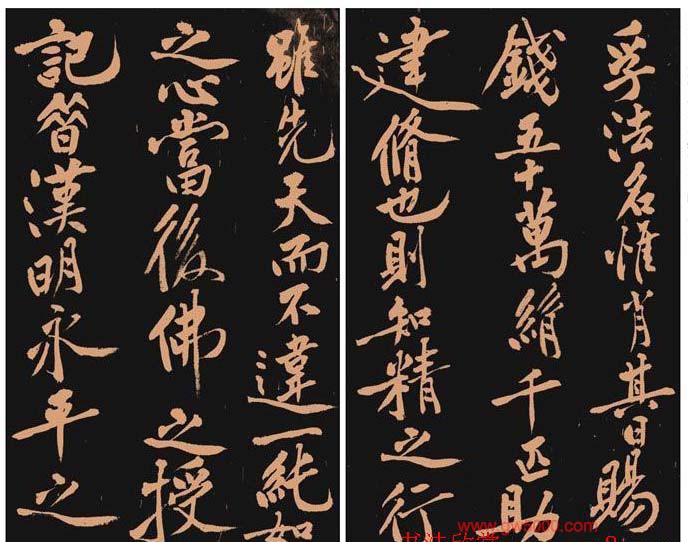 孚法名惟肖其日賜
錢五十萬絹千匹助
建脩也則知精之行
雖先天而不違一純如
之心當後佛之授
記昔漢明永平之